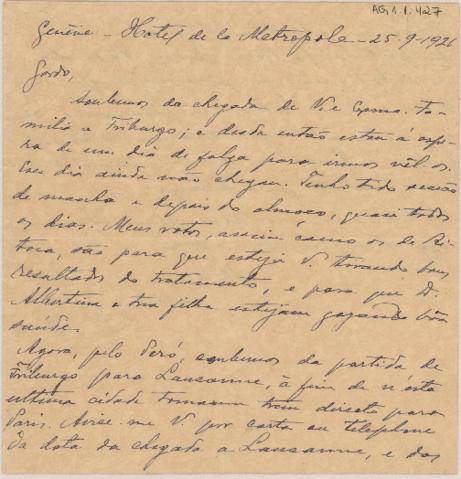 AG, 1.1.427
Genève - Hotel de la Metropole - 25-9-1926
Gordo,
Soubemos da chegada de V. e Exma. Fa-
milia a Friburgo; e desde então estou á espe-
ra de um dia de folga para irmos vêl-os.
Esse dia ainda não chegou. Tenho tido sessão
de manhã e depois do almoço, quasi todos
os dias. Meus votos, assim como os de
são para que esteja V. tirando bons
resultados do tratamento, e para que D.
Albertina e tua filha estejam gozando bôa
saúde.
Agora, pelo Peró, soubemos da partida de
Friburgo para Lausanne, á fim de n'esta
ultima cidade tomarem trem directo para
Paris. Avise-me V. por carta ou telephone
da data da chegada a Lausanne, e dos